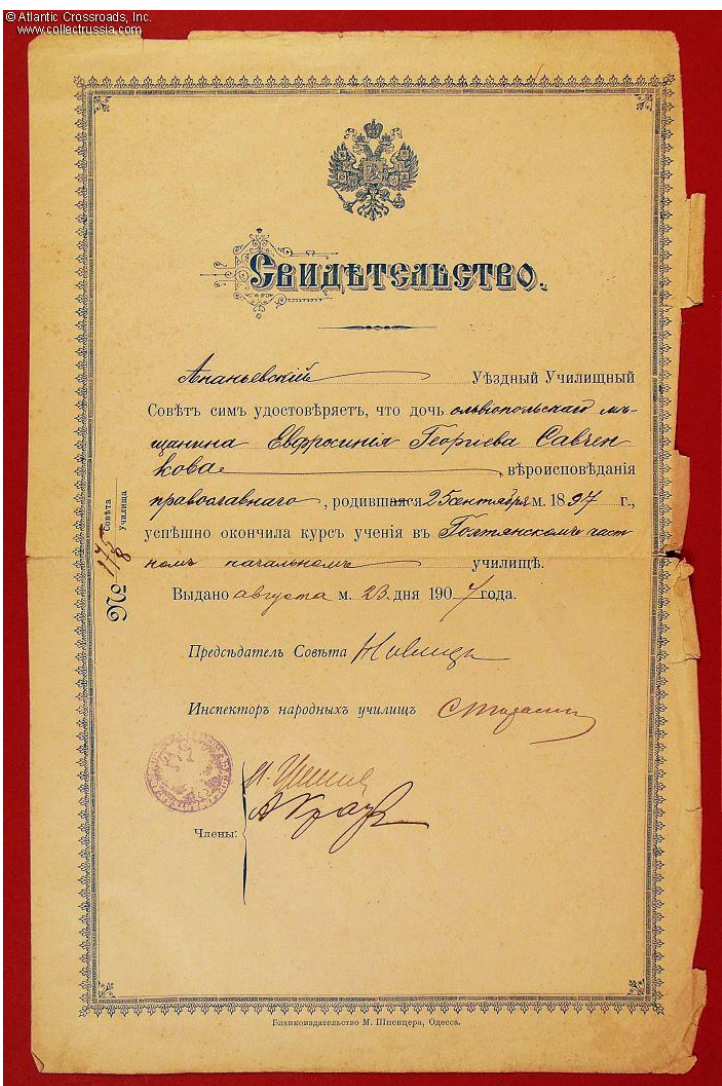 © Atlantic Crossroads, Inc.
www.collectrussia.com
Свидѣтельство.
Ананьевскій Уѣздный Училищный
Совѣтъ симъ удостовѣряетъ, что дочь ольвіопольскаго мѣ-
щанина Евфросинія Георгіева Савчен
кова, вѣроисповѣданія
православнаго, родившаяся 25 сентября м. 1897 г.,
успѣшно окончила курсъ ученія въ Голтянскомъ част
номъ начальномъ училищѣ.
Выдано августа м. 23 дня 1907 года.
№
Совѣта
Училища
Предсѣдатель Совѣта
Инспекторъ народныхъ училищъ
Члены:
Бланкоиздательство М. Шпенцера, Одесса.